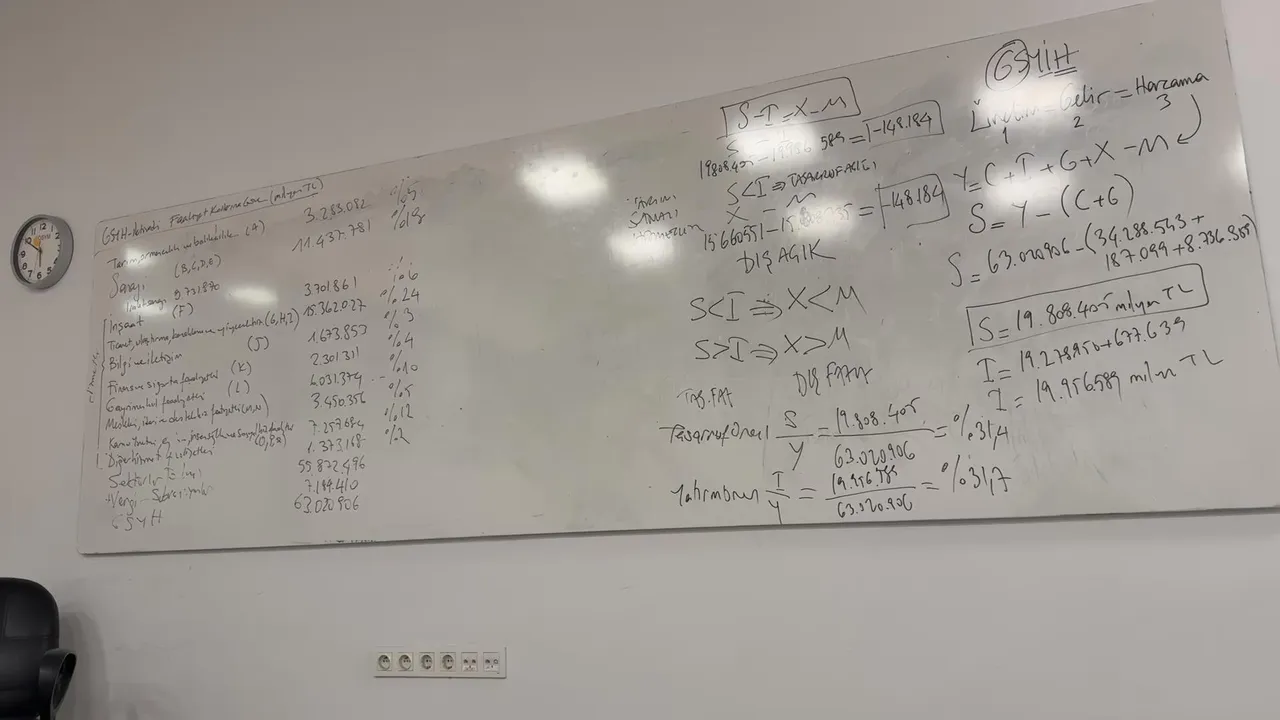 GSYH-İktisadi Faaliyet Kollarına Göre (milyon TL)
Tarım, ormancılık ve balıkçılık (A) 3.283.082 %5
Sanayi (B,C,D,E) 11.437.781 %18
İmalat 9.731.890
İnşaat (F) 3.701.861 %6
Ticaret, ulaştırma, konaklama ve yiyecek (G,H,I) 15.362.027 %24
Bilgi ve iletişim (J) 1.673.853 %3
Finans ve sigorta faaliyetleri (K) 2.301.311 %4
Gayrimenkul faaliyetleri (L) 6.031.374 %10
Mesleki, idari ve destek hiz. faaliyetleri (M,N) 3.450.356 %5
7.257.684 %12
Diğer hizmet faaliyetleri 1.373.168 %2
Sektörler Toplamı 55.872.496
+Vergi-Sübvansiyonlar 7.149.410
GSYH 63.020.906
S-I=X-M
S - I
19808.405-19.956 589=-148.184
S<I⇒TASARRUF AÇIĞI
TARIM
SANAYİ
X - M
=-148.184
DIŞ AÇIK
S<I⇒X<M
S>I⇒X>M
TAS.FAZ DIŞ FAZLA
Tasarruf Oranı S/Y=19.808.405/63.020.906=%31,4
Yatırım Oranı I/Y=19.956.589/63.020.906=%31,7
GSYİH
Üretim=Gelir=Harcama
1 2 3
Y=C+I+G+X-M
S=Y-(C+G)
S=63.020.906-(34.288.543+
187.099+8.736.385)
S=19.808.405 milyon TL
I=19.278950+677.639
I=19.956589 milyon TL